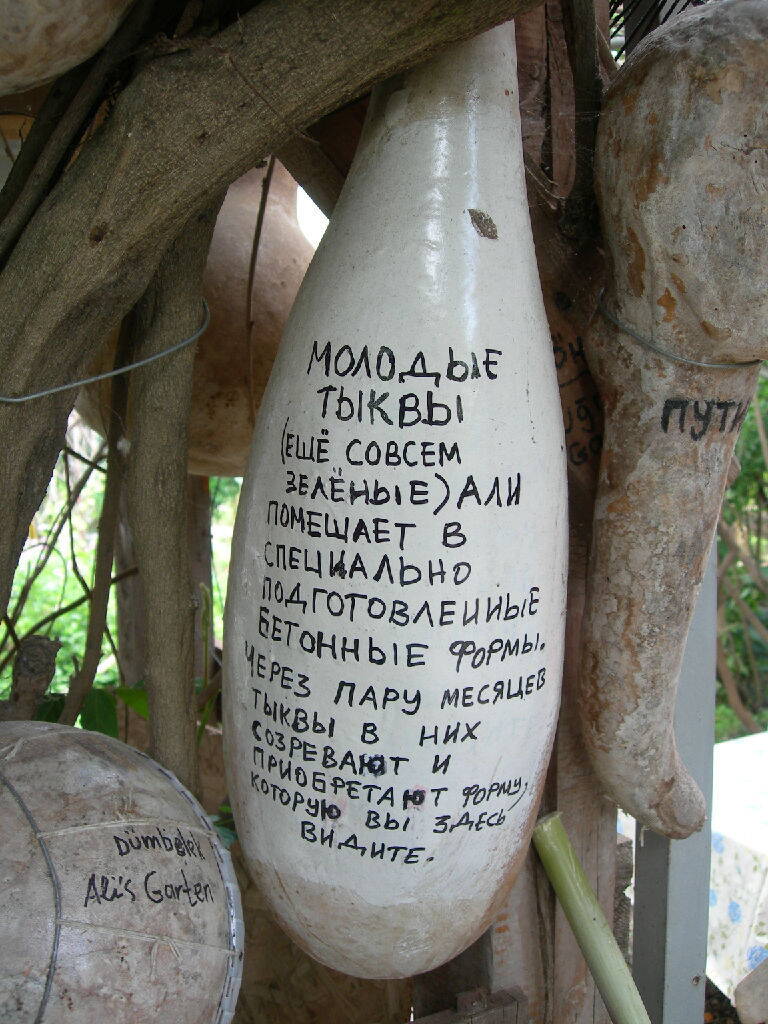 МОЛОДЫЕ
ТЫКВЫ
(ЕЩЁ СОВСЕМ
ЗЕЛЁНЫЕ) АЛИ
ПОМЕЩАЕТ В
СПЕЦИАЛЬНО
ПОДГОТОВЛЕННЫЕ
БЕТОННЫЕ ФОРМЫ.
ЧЕРЕЗ ПАРУ МЕСЯЦЕВ
ТЫКВЫ В НИХ
СОЗРЕВАЮТ И
ПРИОБРЕТАЮТ ФОРМУ,
КОТОРУЮ ВЫ ЗДЕСЬ
ВИДИТЕ.
ПУТИ
Dümbelek
Ali's Garten